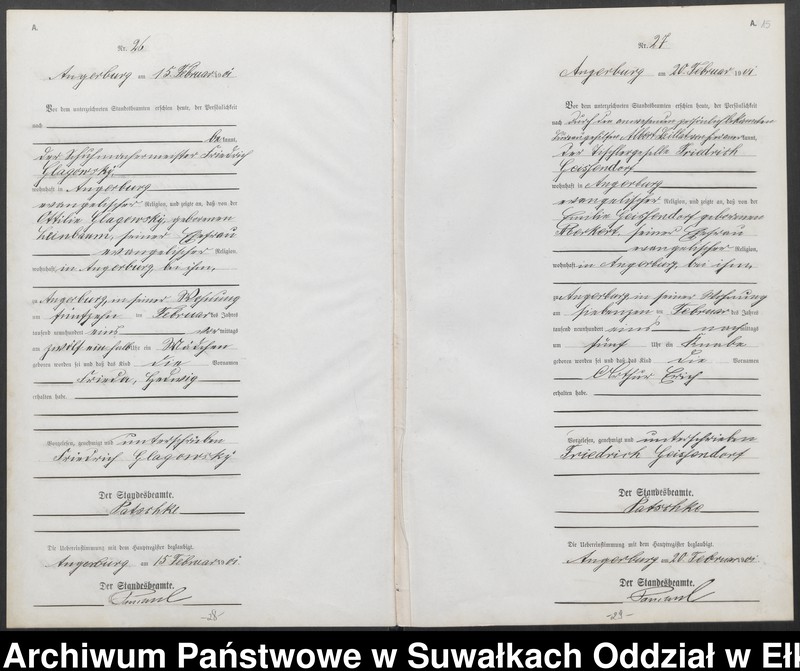 A.
Nr. 26
Angerburg am 15. Februar 1901
Vor dem unterzeichneten Standesbeamten erschien heute, der Persönlichkeit
nach
bekannt,
der Schuhmachermeister Friedrich
Glagowsky,
wohnhaft in Angerburg
evangelischer Religion, und zeigte an, daß von der
Ottilie Glagowsky, geborenen
seiner Ehefrau
evangelischer Religion,
wohnhaft in Angerburg bei ihm,
zu Angerburg, in seiner Wohnung
am fünfzehn ten Februar des Jahres
tausend neunhundert eins Vormittags
um zwölf einhalb Uhr ein Mädchen
geboren worden sei und daß das Kind die Vornamen
Frieda, Hedwig
erhalten habe.
Vorgelesen, genehmigt und unterschrieben
Friedrich Glagowsky
Der Standesbeamte.
Patschke
Die Uebereinstimmung mit dem Hauptregister beglaubigt.
Angerburg am 15. Februar 1901
Der Standesbeamte.
-28-
A. 15
Nr. 27
Angerburg am 20. Februar 1901
Vor dem unterzeichneten Standesbeamten erschien heute, der Persönlichkeit
nach durch den anwesenden persönlich bekannten
Albert
der Tischlergeselle Friedrich
Geissendorf
wohnhaft in Angerburg
evangelischer Religion, und zeigte an, daß von der
Emilie Geissendorf geborenen
seiner Ehefrau
evangelischer Religion,
wohnhaft in Angerburg, bei ihm,
zu Angerburg in seiner Wohnung
am siebenzehn ten Februar des Jahres
tausend neunhundert eins nachmittags
um fünf Uhr ein Knabe
geboren worden sei und daß das Kind die Vornamen
Arthur Erich
erhalten habe.
Vorgelesen, genehmigt und unterschrieben
Friedrich Geissendorf
Der Standesbeamte.
Patschke
Die Uebereinstimmung mit dem Hauptregister beglaubigt.
Angerburg am 20. Februar 1901
Der Standesbeamte.
-29-
Archiwum Państwowe w Suwałkach Oddział w Eł